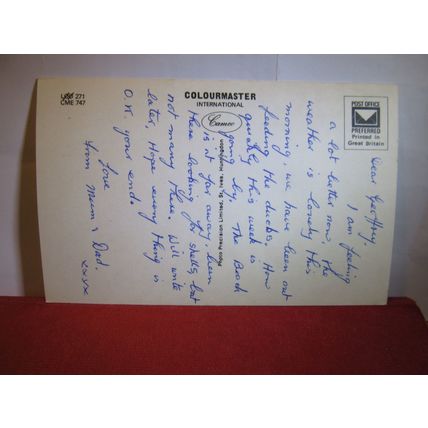 U(X) 271
CME 747
COLOURMASTER
INTERNATIONAL
Cameo
POST OFFICE
PREFERRED
Printed in
Great Britain
Photo Precision Limited, St. Ives, Huntingdon
Dear Geoffrey
I am feeling
a lot better now, the
weather is lovely this
morning, we have been out
feeding the ducks. How
quickly this week is
going by. The Beach
is not far away, been
there looking for shells, but
not many there. Will write
later, Hope every thing is
O.K. your end.
Love
from Mum & Dad.
xxxx